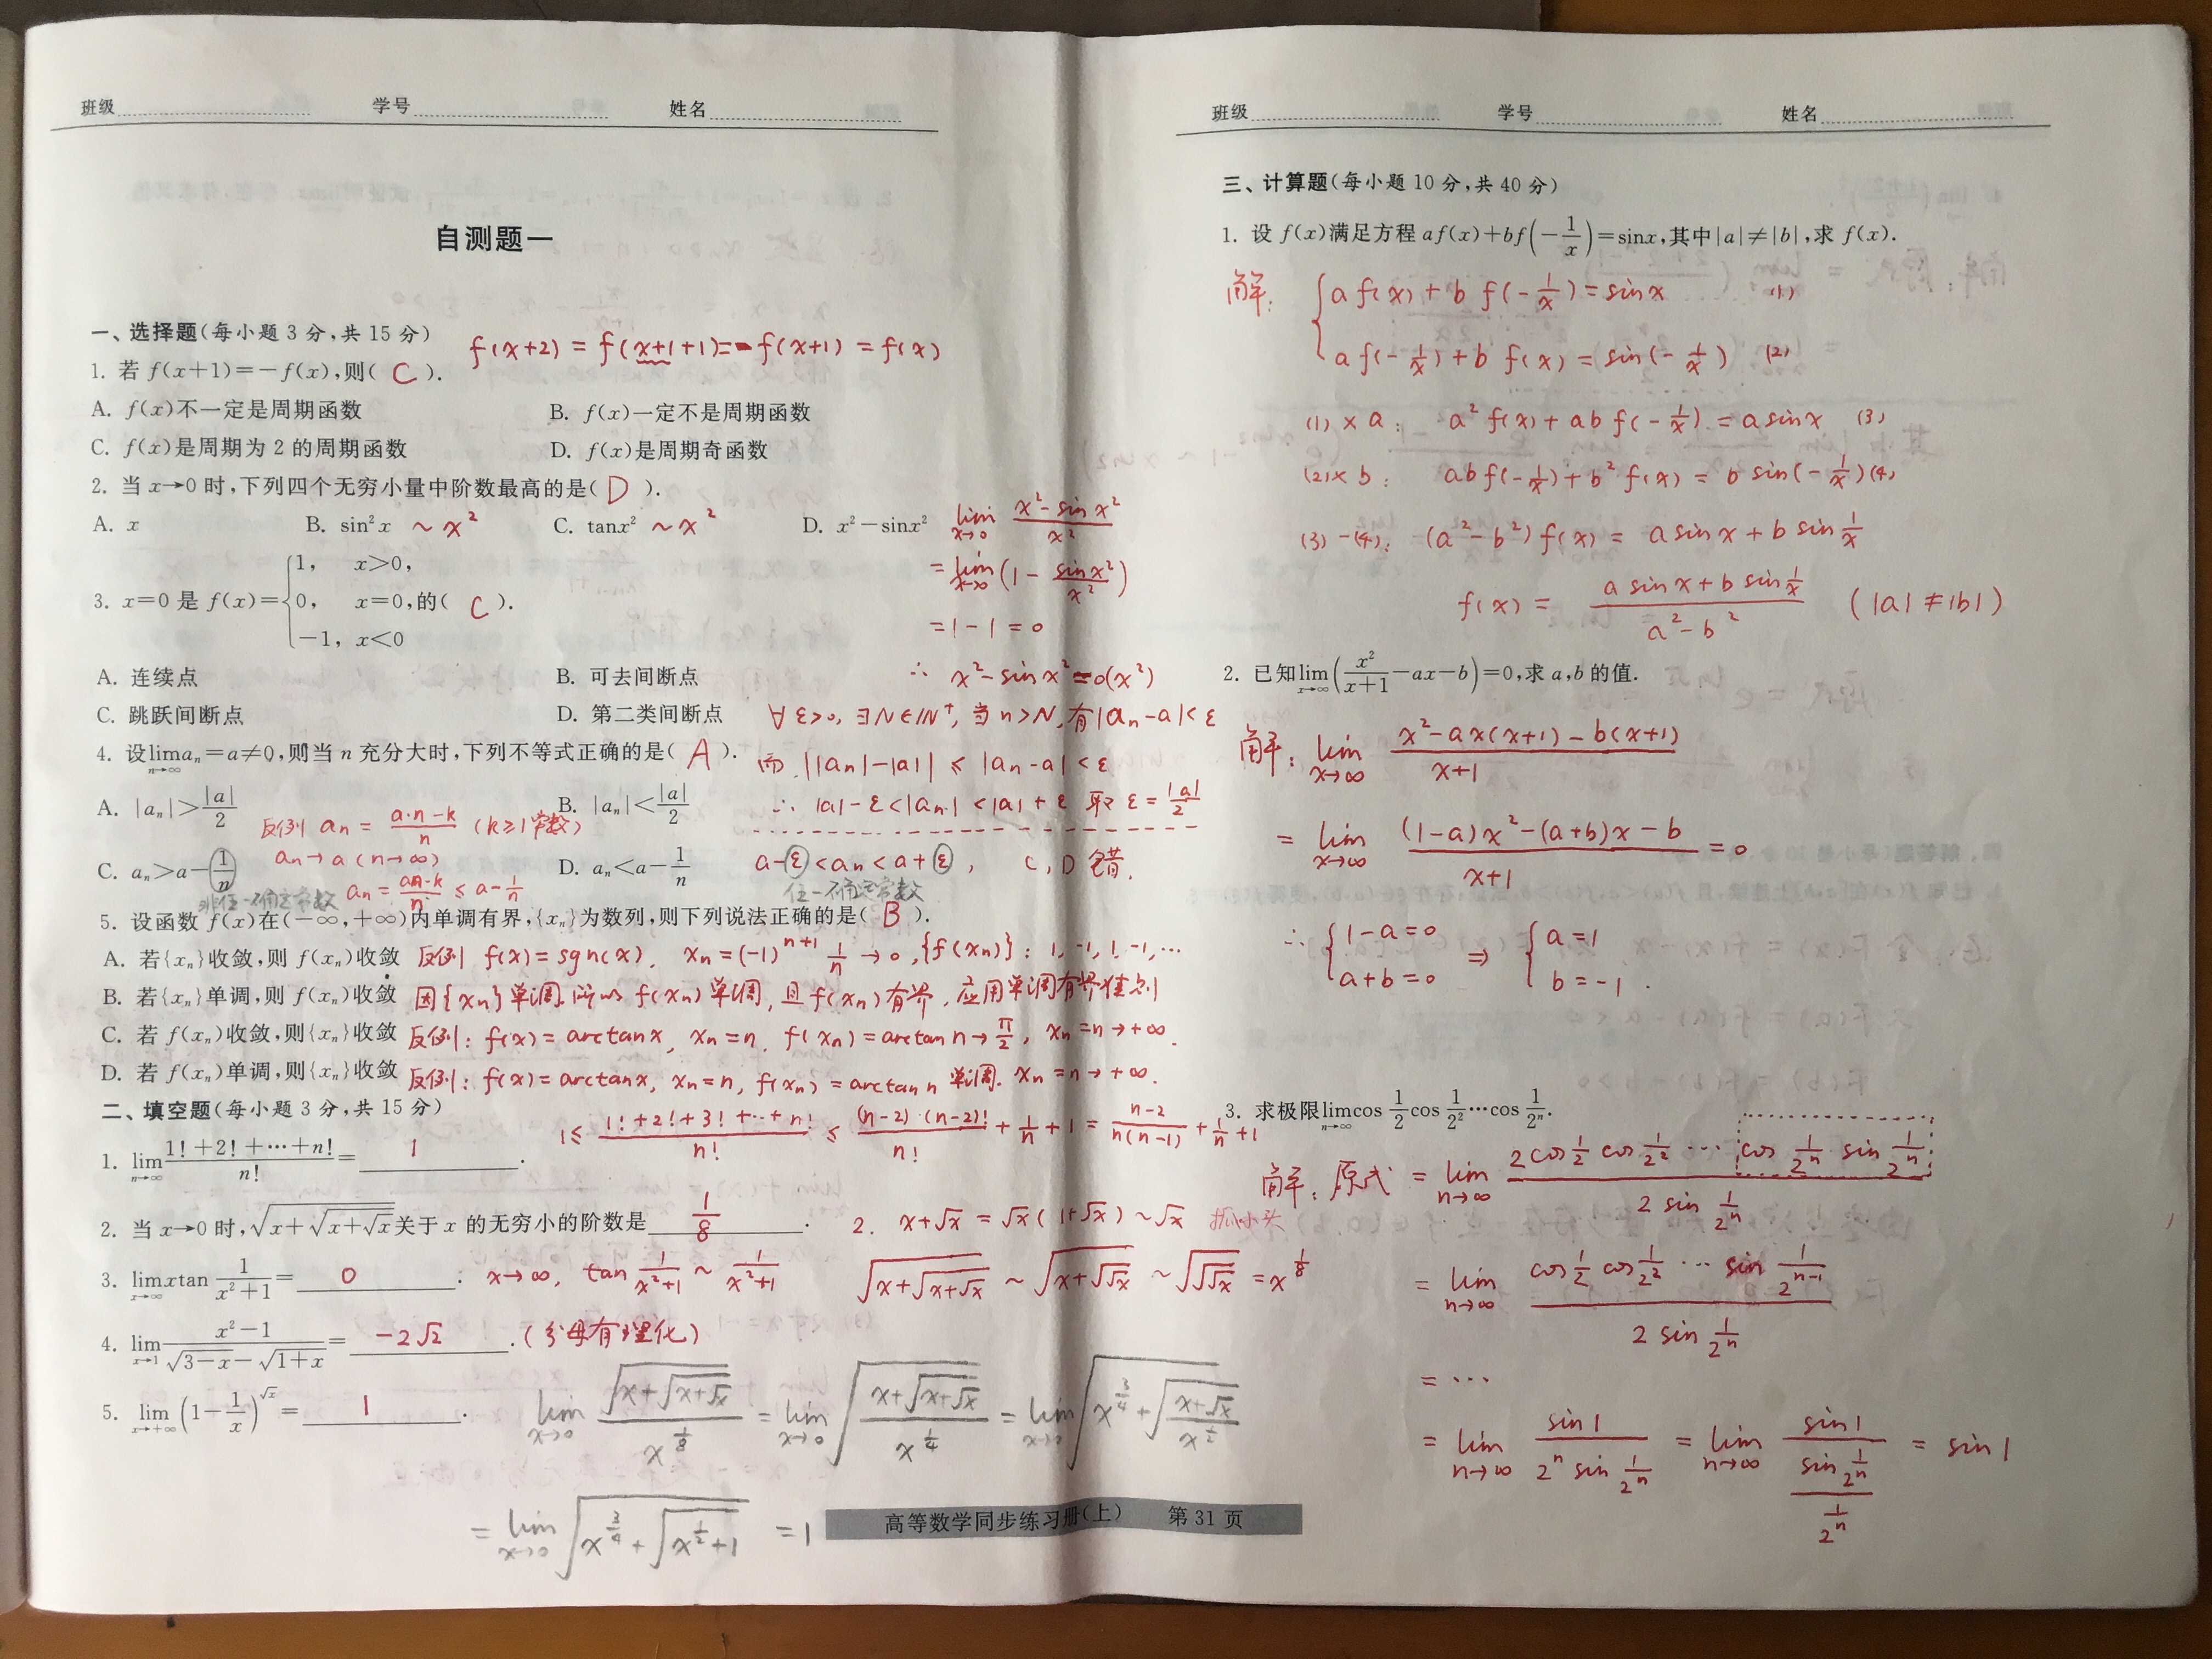 班级 学号 姓名
自测题一
一、选择题(每小题 3 分,共 15 分)
f(x+2) = f(x+1+1)=-f(x+1) = f(x)
1. 若 f(x+1)=-f(x),则( C ).
A. f(x)不一定是周期函数 B. f(x)一定不是周期函数
C. f(x)是周期为 2 的周期函数 D. f(x)是周期奇函数
2. 当 x→0 时,下列四个无穷小量中阶数最高的是( D ).
A. x B. sin²x ~x² C. tanx² ~x² D. x²-sinx² lim x→0 (x²-sinx²)/x²
= lim x→0 (1 - sinx²/x²)
= 1-1=0
∴ x²-sinx²=o(x²)
3. x=0 是 f(x)={1, x>0, 0, x=0, -1, x<0 的( C ).
A. 连续点 B. 可去间断点
C. 跳跃间断点 D. 第二类间断点
∀ε>0, ∃N∈IN⁺, 当 n>N, 有|an-a|<ε
4. 设lim n→∞ an=a≠0,则当 n 充分大时,下列不等式正确的是( A ).
而 ||an|-|a|| ≤ |an-a| <ε
A. |an|>|a|/2 B. |an|<|a|/2
∴ |a|-ε<|an|<|a|+ε 取 ε=|a|/2
反例 an = (a·n-k)/n (k≥1常数)
an→a (n→∞)
C. an>a-1/n D. an<a-1/n
an = (an-k)/n ≤ a-1/n
a-ε<an<a+ε, C,D 错.
非任一确定常数 任一确定常数
5. 设函数 f(x)在(-∞,+∞)内单调有界,{xn}为数列,则下列说法正确的是( B ).
A. 若{xn}收敛,则 f(xn)收敛 反例 f(x)=sgn(x), xn=(-1)^(n+1) 1/n →0,{f(xn)}: 1,-1,1,-1,…
B. 若{xn}单调,则 f(xn)收敛 因{xn}单调,所以 f(xn)单调,且f(xn)有界,应用单调有界准则
C. 若 f(xn)收敛,则{xn}收敛 反例: f(x)=arctanx, xn=n, f(xn)=arctan n→π/2, xn=n→+∞.
D. 若 f(xn)单调,则{xn}收敛 反例: f(x)=arctanx, xn=n, f(xn)=arctan n 单调. xn=n→+∞.
二、填空题(每小题 3 分,共 15 分)
1≤ (1!+2!+3!+…+n!)/n! ≤ ((n-2)·(n-2)!)/n! + 1/n + 1 = (n-2)/(n(n-1)) + 1/n +1
1. lim n→∞ (1!+2!+…+n!)/n! = 1 .
2. 当 x→0 时,√(x+√(x+√x))关于 x 的无穷小的阶数是 1/8 .
2. x+√x = √x(1+√x)~√x 抓小头
√(x+√(x+√x)) ~ √(x+√√x) ~ √√√x = x^(1/8)
3. lim x→∞ xtan 1/(x²+1) = 0 : x→∞, tan 1/(x²+1) ~ 1/(x²+1)
4. lim x→1 (x²-1)/(√(3-x)-√(1+x)) = -2√2 .(分母有理化)
5. lim x→+∞ (1-1/x)^√x = 1 .
lim x→0 √(x+√(x+√x))/x^(1/8) = lim x→0 √((x+√(x+√x))/x^(1/4)) = lim x→0 √(x^(3/4)+√((x+√x)/x^(1/2)))
= lim x→0 √(x^(3/4)+√(x^(1/2)+1)) =1
高等数学同步练习册(上) 第 31 页
班级 学号 姓名
三、计算题(每小题 10 分,共 40 分)
1. 设 f(x)满足方程 af(x)+bf(-1/x)=sinx,其中|a|≠|b|,求 f(x).
解: {a f(x)+b f(-1/x)=sinx (1)
a f(-1/x)+b f(x)=sin(-1/x) (2)
(1)×a: a²f(x)+ab f(-1/x)=a sinx (3)
(2)×b: ab f(-1/x)+b²f(x)=b sin(-1/x)(4)
(3)-(4): (a²-b²)f(x)= a sinx+b sin 1/x
f(x)= (a sinx+b sin 1/x)/(a²-b²) (|a|≠|b|)
2. 已知lim x→∞ (x²/(x+1)-ax-b)=0,求 a,b 的值.
解: lim x→∞ (x²-ax(x+1)-b(x+1))/(x+1)
= lim x→∞ ((1-a)x²-(a+b)x-b)/(x+1) =0
∴ {1-a=0 a+b=0 ⇒ {a=1 b=-1 .
3. 求极限lim n→∞ cos 1/2 cos 1/2² … cos 1/2ⁿ.
解: 原式 = lim n→∞ (2cos 1/2 cos 1/2² … cos 1/2ⁿ sin 1/2ⁿ)/(2 sin 1/2ⁿ)
= lim n→∞ (cos 1/2 cos 1/2² … sin 1/2ⁿ⁻¹)/(2 sin 1/2ⁿ)
= …
= lim n→∞ sin1/(2ⁿ sin 1/2ⁿ) = lim n→∞ sin1/((sin 1/2ⁿ)/(1/2ⁿ)) = sin1